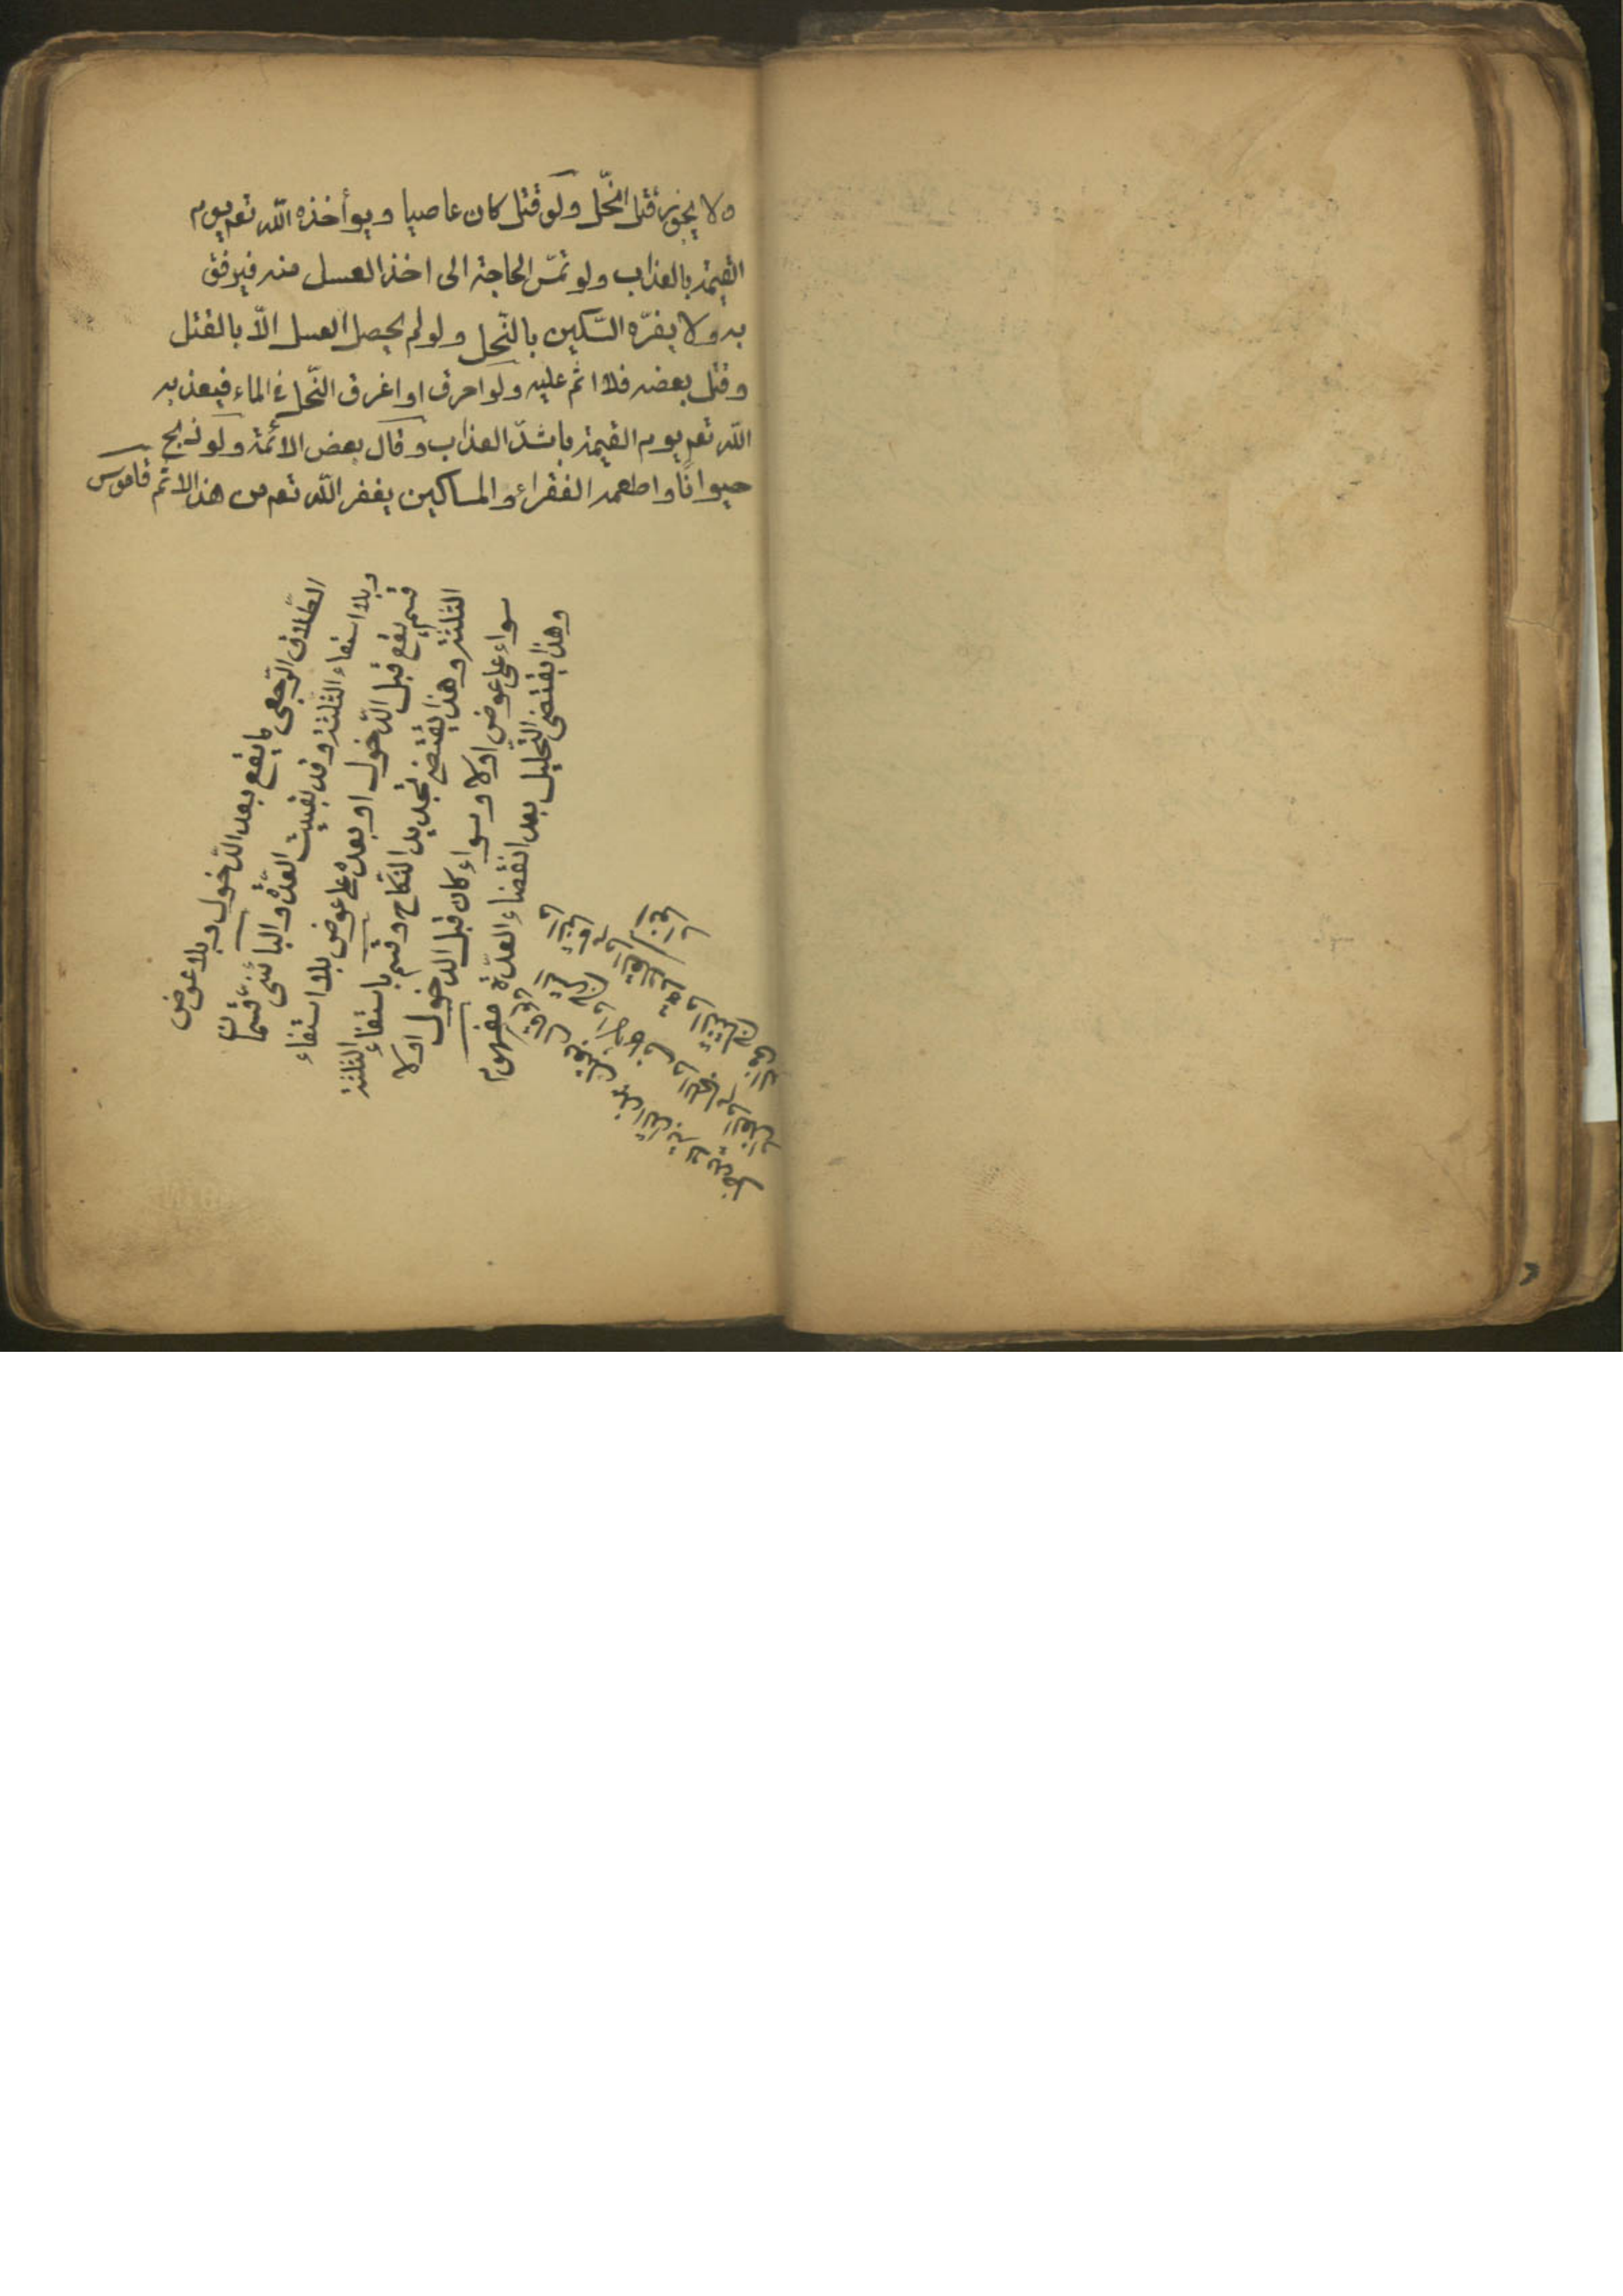 ولا يجوز قتل النّحل ولو قتل كان عاصيا ويوأخذه اللّه تعم يوم
القيمة بالعذاب ولو تمسّ الحاجة الى اخذ العسل منه فيرفق
به ولا يفرّه السّكين بالنّحل ولو لم يحصل العسل الّا بالقتل
وقتل بعضه فلا اثم عليه ولو احرق او اغرق النّحل فى الماء فيعذبه
اللّه تعم يوم القيمة باشدّ العذاب وقال بعض الائمة ولو ذبح
حيوانًا واطعمه الفقراء والمساكين يغفر اللّه تعم من هذا الاثم قاموس
الطّلاق الرّجعى ما يقع بعد الدّخول وبلا عوض
وبلا استفاء الثلثة وقد بقيت العدّة والبائن قسمان
قسم يقع قبل الدّخول او بعده على عوض بلا استفاء
الثلثة وهذا يقتضى تجديد النّكاح وقسم باستفاء الثلثة
سواء على عوض اولا وسواء كان قبل الدخول اولا
وهذا يقتضى التّحليل بعد انقضاء العدّة مفهوم